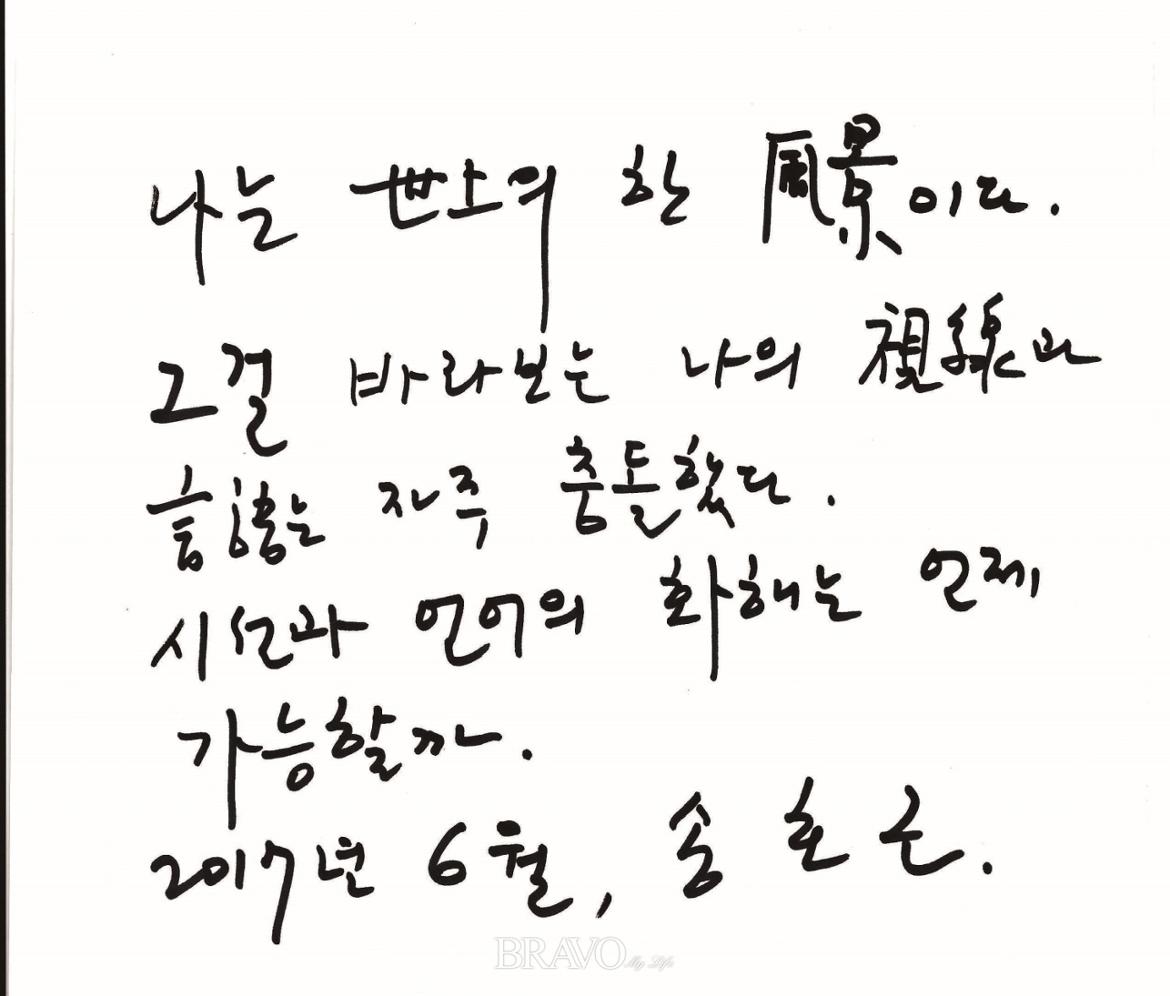 나는 世上의 한 風景이다.
그걸 바라보는 나의 視線과
言語는 자주 충돌했다.
시선과 언어의 화해는 언제
가능할까.
2017년 6월, 송호근.
BRAVO My Life